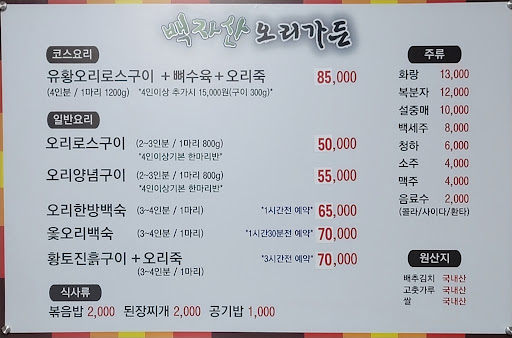 백자산 오리가든
코스요리
유황오리로스구이 +뼈수육+오리죽 85,000
(4인분 / 1마리 1200g) *4인이상 추가시 15,000원(구이 300g)*
일반요리
오리로스구이 (2~3인분 / 1마리 800g) 50,000
*4인이상기본 한마리반*
오리양념구이 (2~3인분 / 1마리 800g) 55,000
*4인이상기본 한마리반*
오리한방백숙 (3~4인분 / 1마리) *1시간전 예약* 65,000
옻오리백숙 (3~4인분 / 1마리) *1시간30분전 예약* 70,000
황토진흙구이+오리죽 *3시간전 예약* 70,000
(3~4인분 / 1마리)
식사류
볶음밥 2,000 된장찌개 2,000 공기밥 1,000
주류
화랑 13,000
복분자 12,000
설중매 10,000
백세주 8,000
청하 6,000
소주 4,000
맥주 4,000
음료수 2,000
(콜라/사이다/환타)
원산지
배추김치 국내산
고춧가루 국내산
쌀 국내산